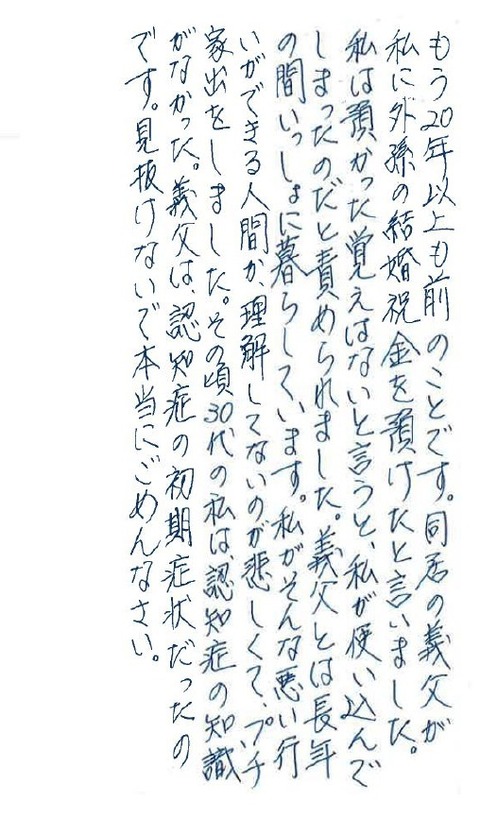 もう20年以上も前のことです。同居の義父が
私に外孫の結婚祝金を預けたと言いました。
私は預かった覚えはないと言うと、私が使い込んで
しまったのだと責められました。義父とは長年
の間いっしょに暮らしています。私がそんな悪い行
いができる人間か、理解してないのが悲しくて、プチ
家出をしました。その頃30代の私は、認知症の知識
がなかった。義父は、認知症の初期症状だったの
です。見抜けないで本当にごめんなさい。